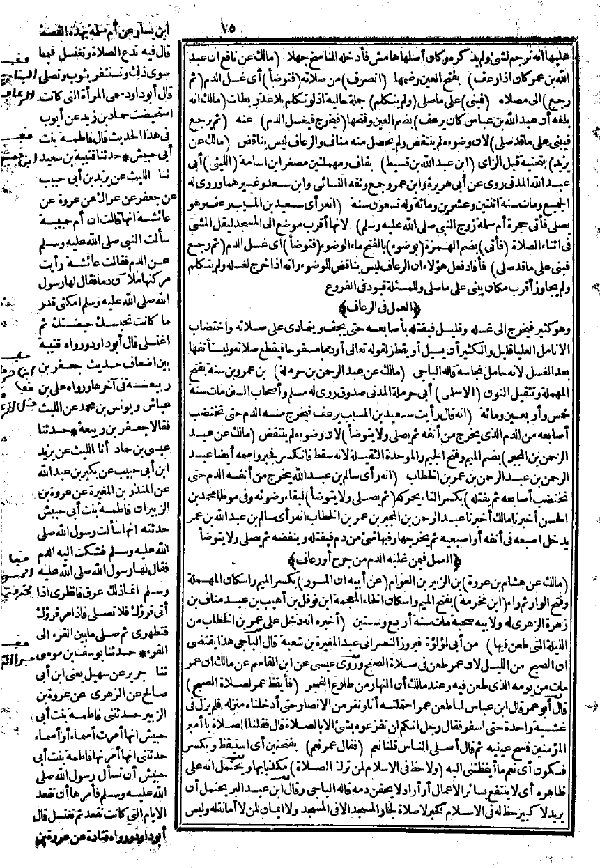 ٧٥
عليها أنه ترجم لشئ ولم يذكر مو كأن أصلها هامش فأدخله الناسخ جهلا (مالك عن نافع ان عبد
الله بن عمر كان اذا رعف) بفتح العين وضمها (انصرف) من صلاته (فتوضأ) أى غسل الدم (ثم
رجع) الى مصلاه (فبنى) على ما صلى (ولم يتكلم) جملة حالية اذ لو تكلم بلا عذر بطلت (مالك انه
بلغه أن عبد الله بن عباس كان يرعف) بضم العين وفتحها (فيخرج فيغسل الدم) عنه (ثم يرجع
فيبنى على ما قد صلى) لان وضوءه لم ينتقض ولم يحصل منه مناف والرعاف ليس بناقض (مالك عن
يزيد) بتحتية قبل الزاى (ابن عبد الله بن قسيط) بقاف ومهملتين مصغر ابن أسامة (الليثى) أبى
عبد الله المدنى روى عن أبى هريرة وابن عمر وجمع وثقه النسائى وابن سعد وغيرهما وروى له
الجميع ومات سنة اثنتين وعشرين ومائة وله تسعون سنة (انه رأى سعيد بن المسيب رعف وهو
يصلى فأتى حجرة أم سلمة زوج النبى صلى الله عليه وسلم) لانها أقرب موضع الى المسجد ليقل المشى
فى اثناء الصلاة (فأتى) بضم الهمزة (بوضوء) بالفتح ماء الوضوء (فتوضأ) أى غسل الدم (ثم رجع
فبنى على ما قد صلى) فأفاد فعل هؤلاء ان الرعاف ليس بناقض للوضوء وانه اذا خرج لغسله ولم يتكلم
ولم يجاوز أقرب مكان يبنى على ما صلى وللمسئلة قيود فى الفروع
﴿العمل فى الرعاف﴾
وهو كثير فيخرج الى غسله وقليل فيفتله بأصابعه حتى يجف ويتمادى على صلاته واختضاب
الانامل العليا قليل والكثير أن يسيل أو يقطر لقوله تعالى أو دما مسفوحا فيقطع صلاته وليستأنفها
بعد الغسل لانه حامل نجاسة قاله الباجى (مالك عن عبد الرحمن بن حرملة) بن عمرو بن سنة بفتح
المهملة وتثقيل النون (الاسلمى) أبى حرملة المدنى صدوق روى له مسلم وأصحاب السنن مات سنة
خمس وأربعين ومائة (انه قال رأيت سعيد بن المسيب يرعف فيخرج منه الدم حتى تختضب
أصابعه من الدم الذى يخرج من أنفه ثم يصلى ولا يتوضأ) لان وضوءه لم ينتقض (مالك عن عبد
الرحمن بن المجبر) بضم الميم وفتح الجيم والموحدة الثقيلة لانه سقط فانكسر فجبر واسمه أيضا عبد
الرحمن بن عبد الرحمن بن عمر بن الخطاب (انه رأى سالم بن عبد الله يخرج من أنفه الدم حتى
تختضب أصابعه ثم يفتله) بكسر التاء يحركه (ثم يصلى ولا يتوضأ) لبقاء وضوئه وفى موطا محمد بن
الحسن أخبرنا مالك أخبرنا عبد الرحمن بن المجبر بن عبد الرحمن بن عمر بن الخطاب انه رأى سالم بن عبد الله بن عمر
يدخل اصبعه فى أنفه أو اصبعيه ثم يخرجها وفيها شئ من دم فيفتله وينفضه ثم يصلى ولا يتوضأ
﴿العمل فيمن غلبه الدم من جرح أو رعاف﴾
(مالك عن هشام بن عروة) بن الزبير بن العوام (عن أبيه ان المسور) بكسر الميم واسكان المهملة
وفتح الواو ثم راء (ابن مخرمة) بفتح الميم واسكان الخاء المعجمة ابن نوفل بن أهيب بن عبد مناف بن
زهرة الزهرى له ولابيه صحبة مات سنة أربع وستين (أخبره انه دخل على عمر بن الخطاب من
الليلة التى طعن فيها) من أبى لؤلؤة فيروز النصرانى عبد المغيرة بن شعبة قال الباجى هذا يقتضى
ان الصبح من الليل لان عمر طعن فى صلاة الصبح وروى عيسى عن ابن القاسم عن مالك ان عمر
مات من يومه الذى طعن فيه وعند مالك أن النهار من طلوع الفجر (فأيقظ عمر لصلاة الصبح)
قال أبو عمر قال ابن عباس لما طعن عمر احتملته أنا ونفر من الانصار حتى أدخلناه منزله فلم يزل فى
غشية واحدة حتى أسفر فقال رجل انكم لن تفزعوه بشئ الا بالصلاة قال فقلنا الصلاة يا أمير
المؤمنين ففتح عينيه ثم قال أصلى الناس قلنا نعم (فقال عمر نعم) بفتحتين أى استيقظ وبكسر
فسكون أى نعم ما أيقظتنى اليه (ولا حظ فى الاسلام لمن ترك الصلاة) مكذبا بها ويحتمل انه على
ظاهره أى لا ينتفع بسائر الاعمال أو أراد لا يحقن دمه قاله الباجى وقال ابن عبد البر يحتمل أن
يريد لا كبير حظ له فى الاسلام كخبر لا صلاة لجار المسجد الا فى المسجد ولا ايمان لمن لا أمانة له وليس
ابن يسار عن أم سلمة بهذه القصة
قال فيه تدع الصلاة وتغتسل فيما
سوى ذلك وتستثفر بثوب وتصلى
قال أبو داود سمى المرأة التى كانت
استحيضت حماد بن زيد عن أيوب
فى هذا الحديث قال فاطمة بنت
أبى حبيش * حدثنا قتيبة بن سعيد
ثنا الليث عن يزيد بن أبى حبيب
عن جعفر عن عراك عن عروة عن
عائشة انها قالت ان أم حبيبة
سألت النبى صلى الله عليه وسلم
عن الدم فقالت عائشة رأيت
مركنها ملآن دما فقال لها رسول
الله صلى الله عليه وسلم امكثى قدر
ما كانت تحبسك حيضتك ثم
اغتسلى قال أبو داود ورواه قتيبة
بين اضعاف حديث جعفر بن
ربيعة فى آخرها ورواه على بن
عياش ويونس بن محمد عن الليث
فقالا جعفر بن ربيعة * حدثنا
عيسى بن حماد أنا الليث عن يزيد
ابن أبى حبيب عن بكير بن عبد الله
عن المنذر بن المغيرة عن عروة بن
الزبير ان فاطمة بنت أبى حبيش
حدثته انها سألت رسول الله صلى
الله عليه وسلم فشكت اليه الدم
فقال لها رسول الله صلى الله عليه
وسلم انما ذلك عرق فانظرى اذا
أتى قرؤك فلا تصلى فاذا مر قرؤك
فتطهرى ثم صلى ما بين القرء الى
القرء * حدثنا يوسف بن موسى
ثنا جرير عن سهيل يعنى ابن أبى
صالح عن الزهرى عن عروة بن
الزبير حدثتنى فاطمة بنت أبى
حبيش انها أمرت أسماء أو أسماء
حدثتنى انها أمرتها فاطمة بنت أبى
حبيش أن تسأل رسول الله صلى
الله عليه وسلم فأمرها أن تقعد
الايام التى كانت تقعد ثم تغتسل قال
أبو داود ورواه قتادة عن عروة بن